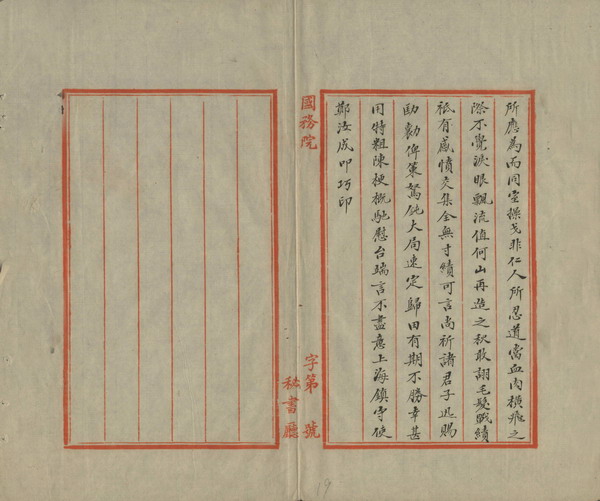 所應為而同室操戈非仁人所忍道當血肉橫飛之
際不覺淚眼飄流值何山再造之秋敢詡毛髮戰績
祇有感憤交集全無寸績可言尚祈諸君子迅賜
勛勷俾策駑鈍大局速定歸田有期不勝幸甚
用特粗陳梗概馳慰台端言不盡意上海鎮守使
鄭汝成叩巧印
國務院
字第 號
秘書廳
19